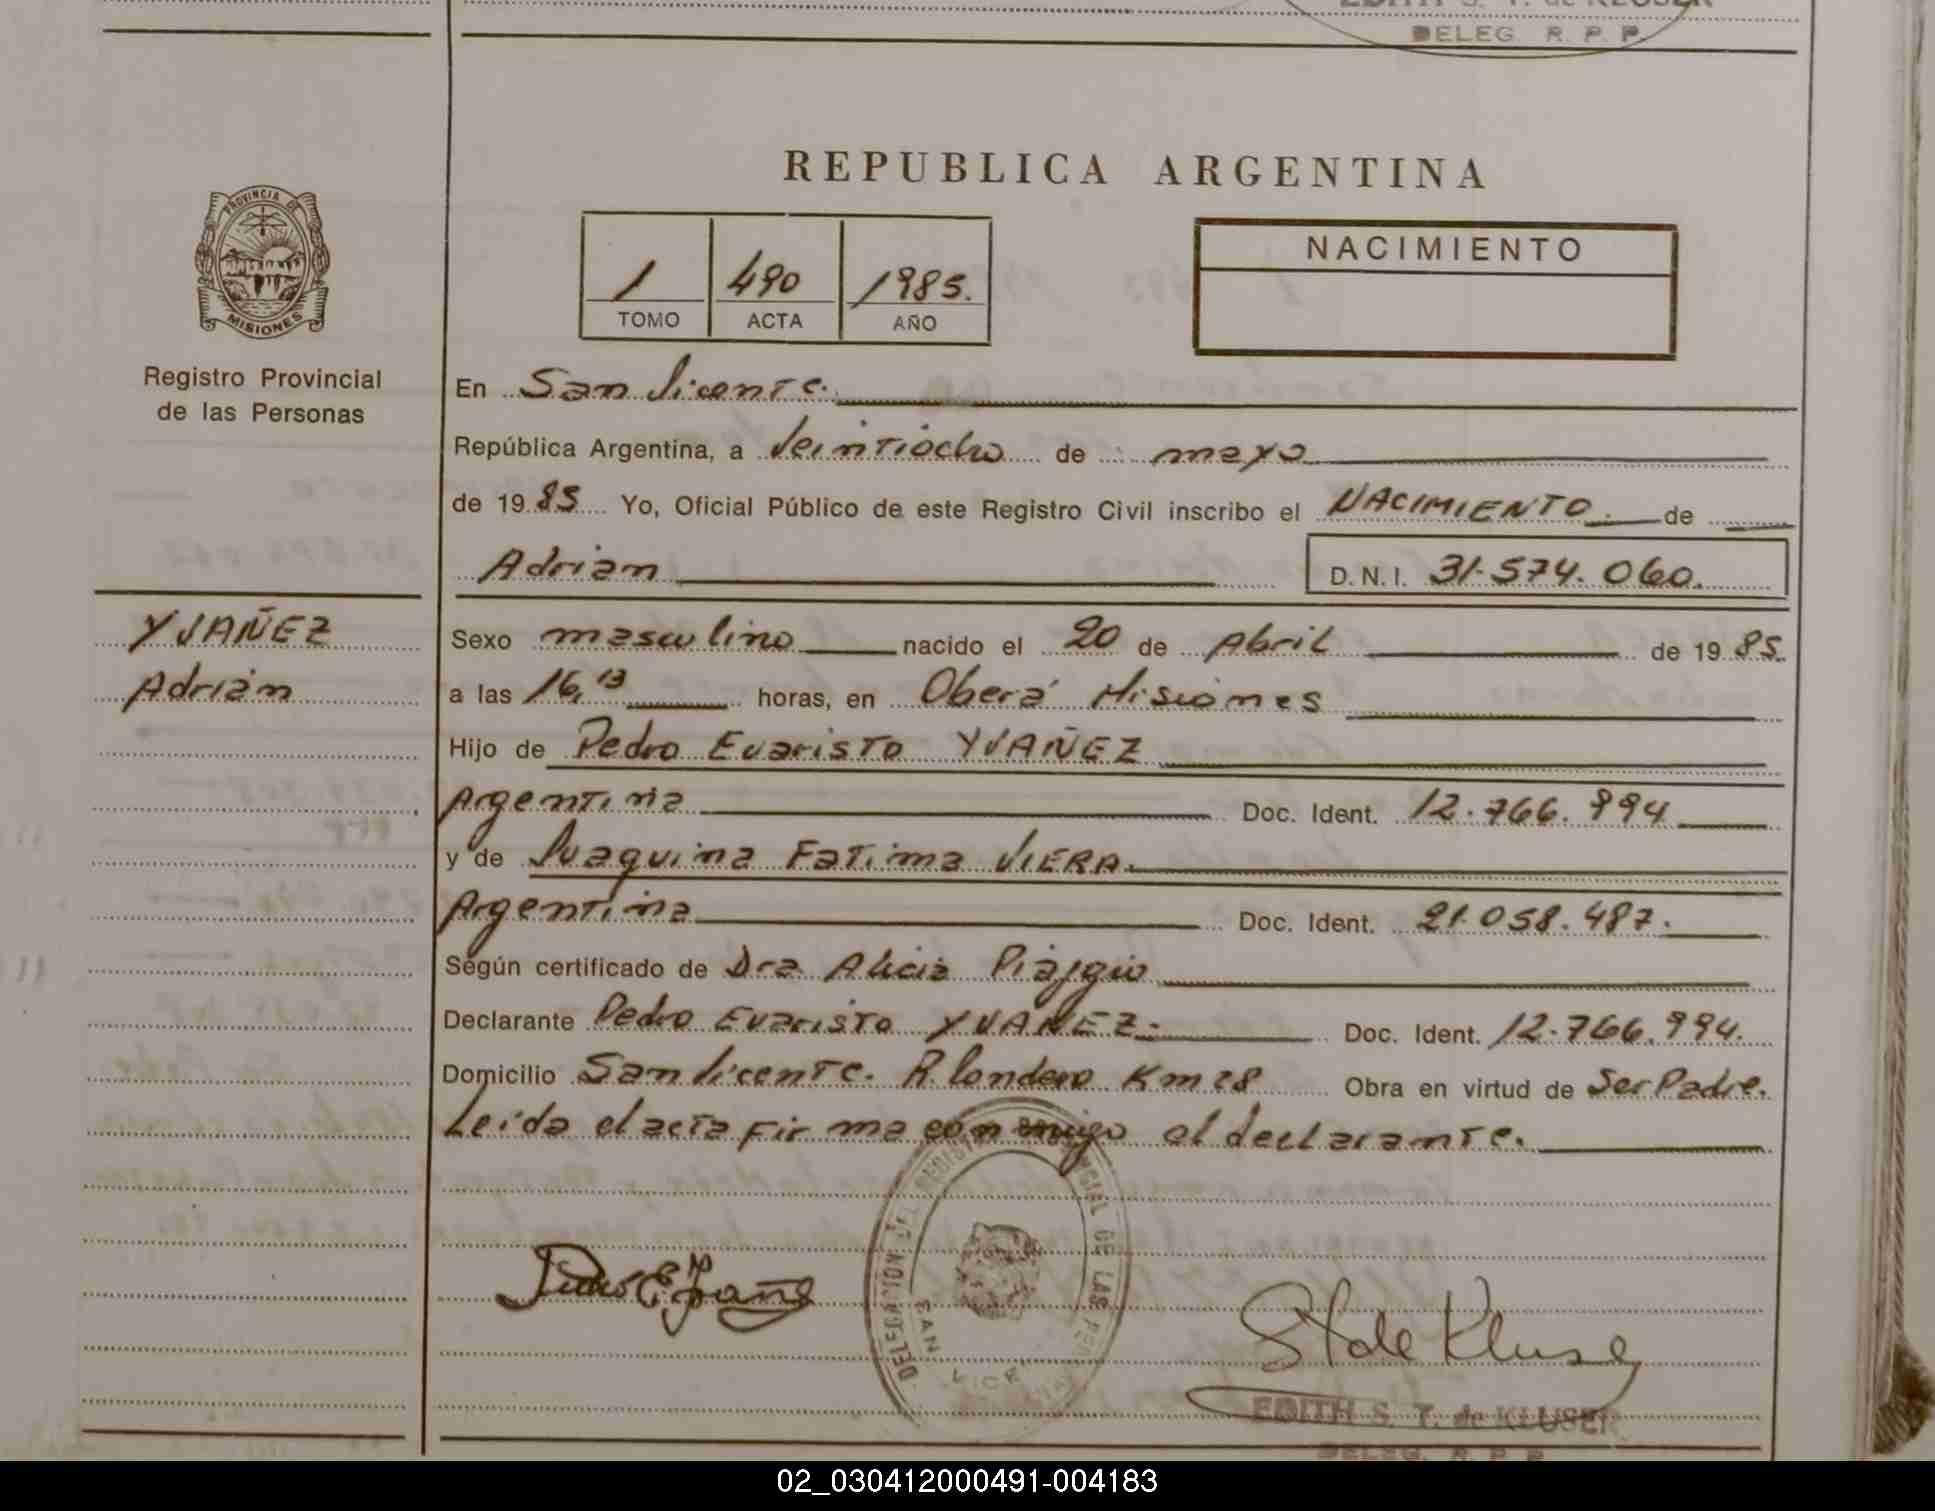 EDITH S. T. de KLUSER
DELEG. R. P. P.
REPUBLICA ARGENTINA
PROVINCIA DE
MISIONES
Registro Provincial
de las Personas
1 490 1985.
TOMO ACTA AÑO
NACIMIENTO
En San Vicente.
República Argentina, a Veintiocho de mayo
de 1985 Yo, Oficial Público de este Registro Civil inscribo el NACIMIENTO. de
Adrian D.N.I. 31.574.060.
YVAÑEZ
Adrián
Sexo masculino nacido el 20 de Abril de 1985.
a las 16,13 horas, en Oberá Misiones
Hijo de Pedro Evaristo YVAÑEZ
Argentina Doc. Ident. 12.766.994
y de Juaquina Fatima VIERA.
Argentina Doc. Ident. 21.058.487.
Según certificado de Dra Alicia Piaggio
Declarante Pedro Evaristo YVAÑEZ. Doc. Ident. 12.766.994.
Domicilio San Vicente. R. londero Km 28 Obra en virtud de Ser Padre.
Leida el acta firma conmigo el declarante.
DELEGACION DEL REGISTRO PROVINCIAL DE LAS PER
SAN VICE
Pedro E. Ybañe
E T de Kluser
EDITH S. T. de KLUSER
DELEG. R. P. P.
02_030412000491-004183